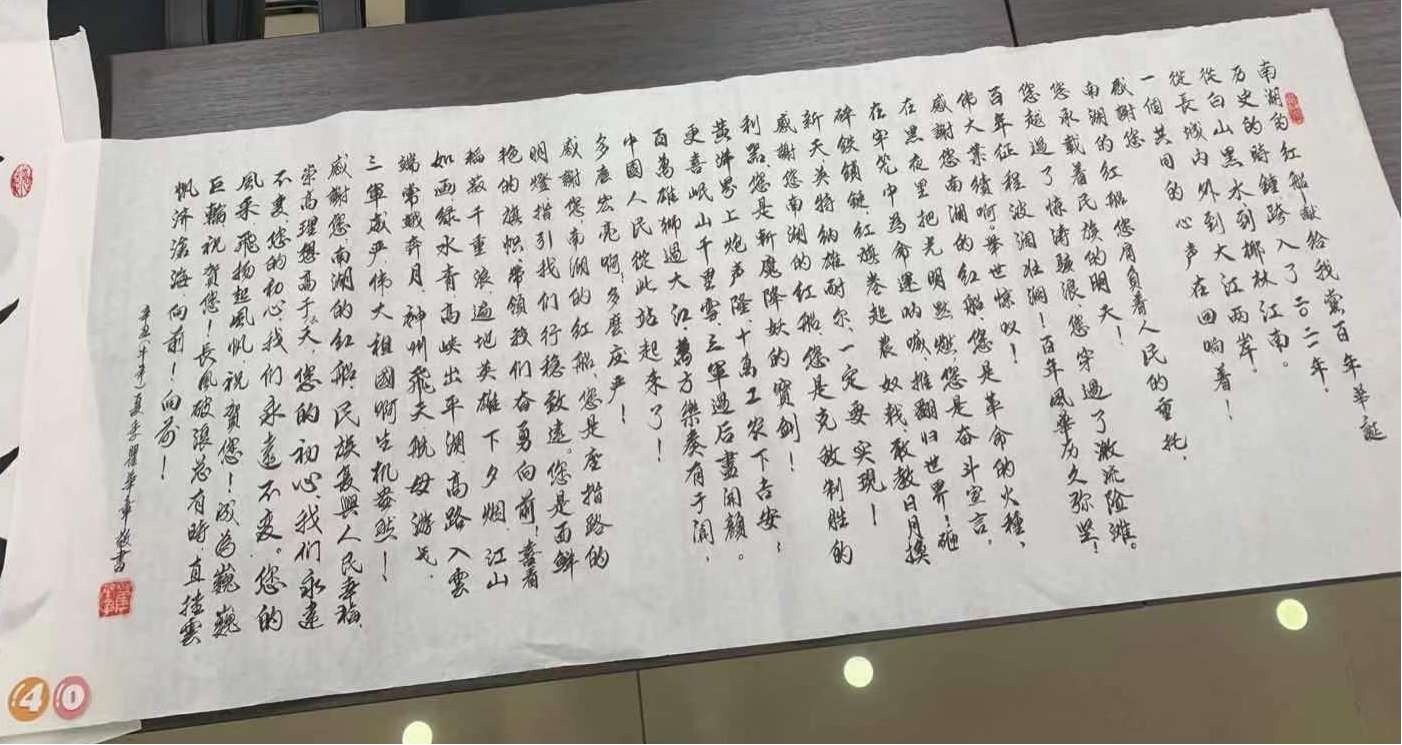 南湖的红船献给我黨百年华诞
历史的時鐘跨入了二〇二一年,
從白山黑水到椰林江南。
從長城内外到大江两岸!
一個共同的心声在回响着!
感謝您
南湖的红船您肩負着人民的重托,
您承載着民族的明天!
您越過了惊涛骇浪您穿過了激流险滩。
百年征程波澜壮阔!百年風華历久弥坚!
伟大業績啊。举世惊叹!
感謝您南湖的红船您是革命的火種,
在黑夜里把光明燃您是奋斗宣言,
在牢笼中為命運呐喊推翻旧世界!砸
碎铁鎖鏈,红旗卷起農奴戟,敢教日月换
新天,英特纳雄耐尔,一定要实现!
感謝您南湖的红船您是克敌制胜的
利器,您是斩魔降妖的寶剑!
黄洋界上炮声隆,十萬工农下吉安;
更喜岷山千里雪,三軍過后盡開颜。
百萬雄狮過大江,萬方樂奏有于阗,
中國人民從此站起来了!
多麽宏亮啊!多麽庄严!
感謝您南湖的红船,您是座指路的
明燈指引我们行稳致遠。您是面鲜
艳的旗帜,带领我们奋勇向前!喜看
稻菽千重浪,遍地英雄下夕烟,江山
如画绿水青,高峡出平湖,高路入雲
端,常娥奔月,神州飛天,航母游弋,
三軍威严,伟大祖國啊生机盎然!
感謝您南湖的红船,民族复興人民幸福,
崇高理想高于天,您的初心,我们永遠
不变您的初心,我们永遠不变。您的
風采飛扬起風帆祝賀您!成為巍巍
巨輪祝賀您!長風破浪总有時,直挂雲
帆济滄海,向前!向前!
辛丑年夏季瞿华章敬書
40